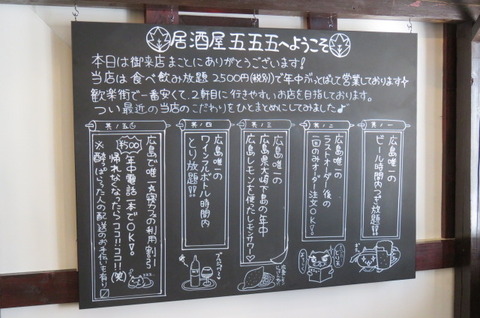 居酒屋五五五へようこそ
本日は御来店まことにありがとうございます!
当店は食べ飲み放題2500円(税別)で年中ぶっとばして営業しております
歓楽街で一番安くて、2軒目に行きやすいお店を目指しております。
つい最近の当店のこだわりをひとまとめにしてみました♪
其ノ一
広島唯一の
ビール時間内つぎ放題!!
其ノ二
広島唯一の
ラストオーダー後の
一回のみオーダー注文OK!
其ノ三
広島唯一の
広島県大崎下島の年中
広島レモンを使ったレモンサワー♡
其ノ四
広島唯一の
ワインフルボトル時間内
とり放題!!
其ノ五
広島で唯一
の利用割引!
¥500 年中電話一本でOK!
帰れなくなったらココ!!ココ!!(笑)
※酔っぱらった人の配送のお手伝いも有り